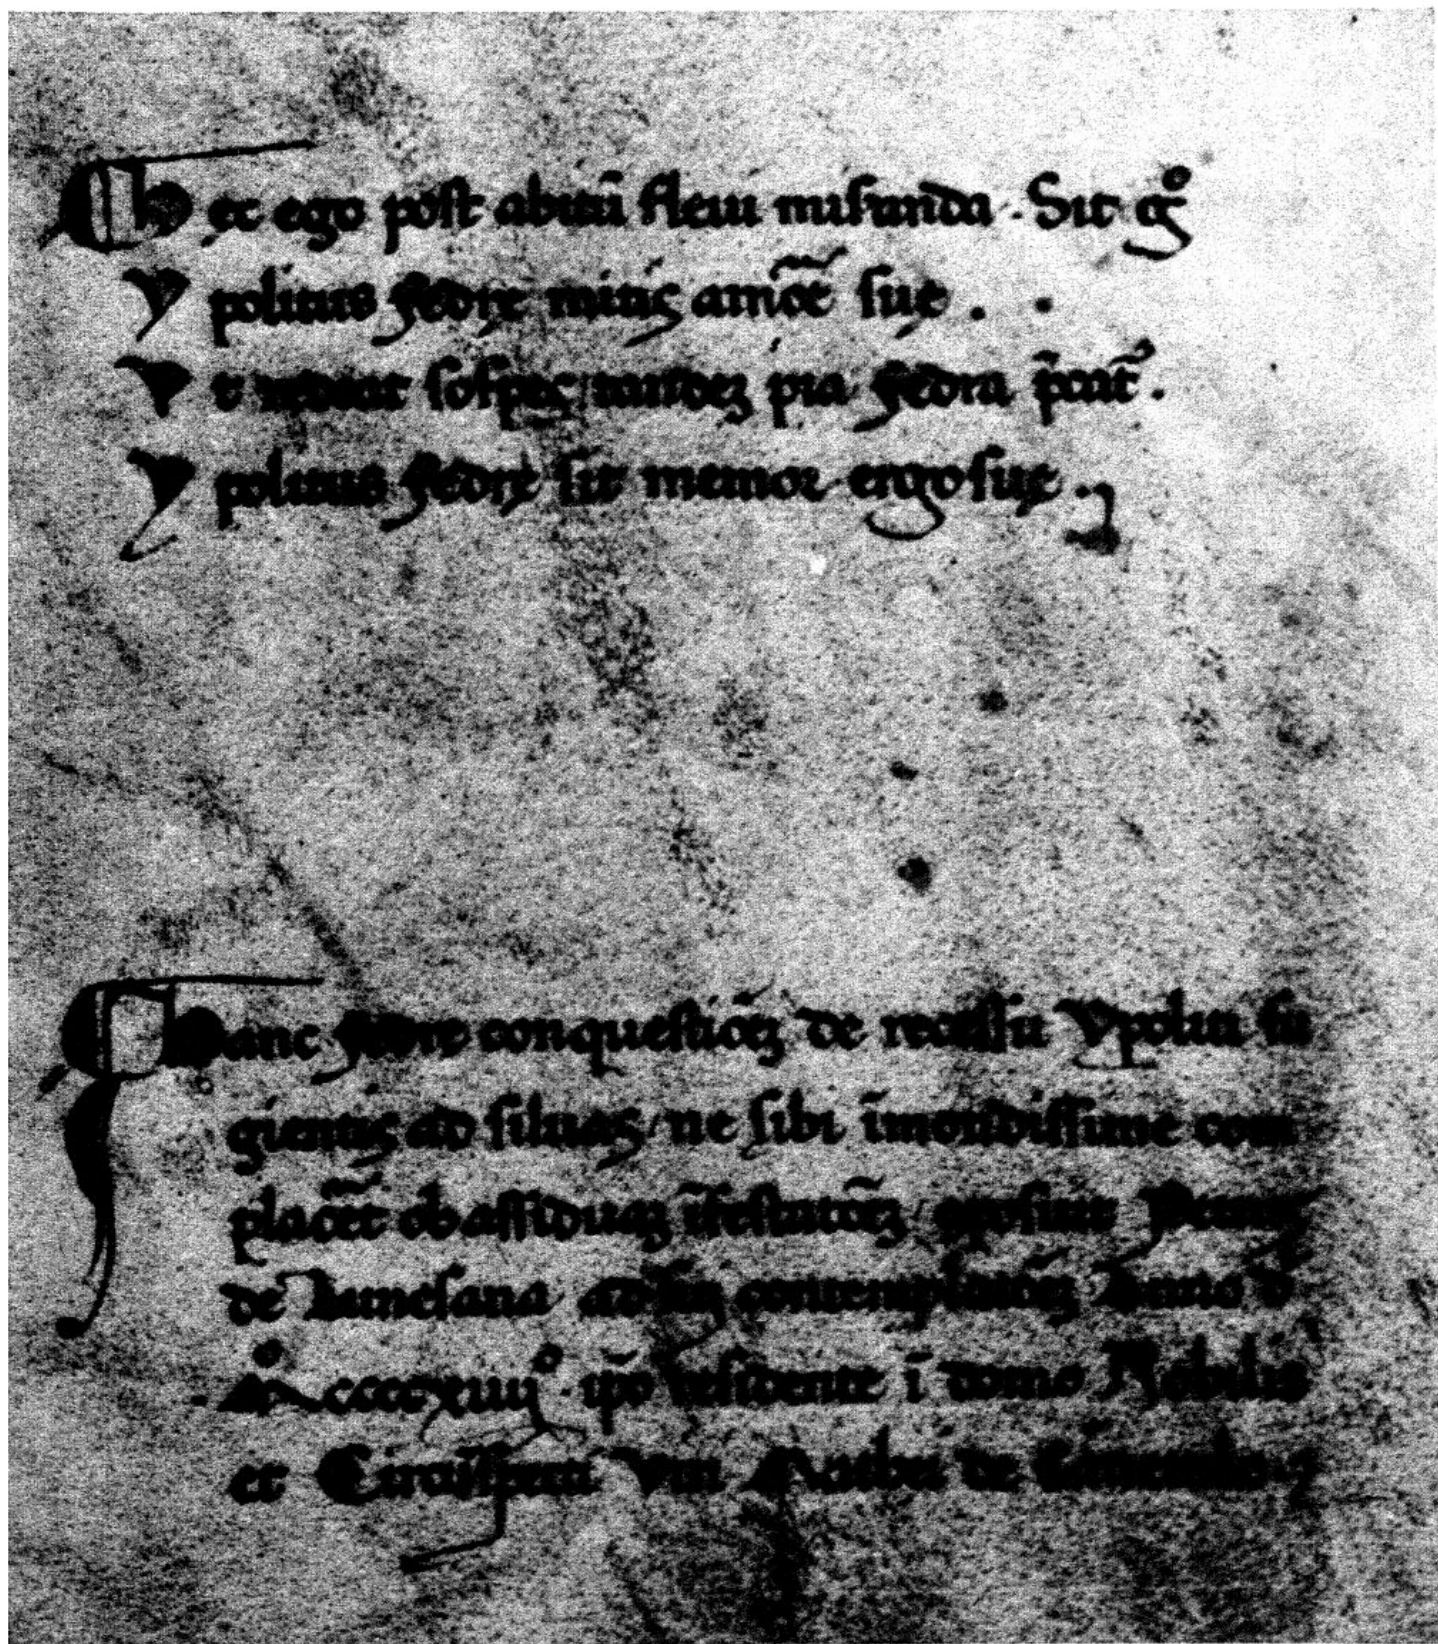 Hec ego post abitū fleui misʼranda . Sit gͦ
Ypolitus fedre mitis amōre sue .
Vt redeat sospes / pia fedra p̄cat᷑ .
Ypolitus fedre sit memor ergo sue .
Hanc fedre conquestiōez de recessu Ypoliti fu
gientis ad siluas / ne sibi īmondissime com
placēt ob assiduaz īfestatōez / Petrus
de Lunesana ad contemplatōez Anno d
. Mͦccccxiiijͦ . ip̄o residente ī domo Nobilis
et Circūspecti Viri de